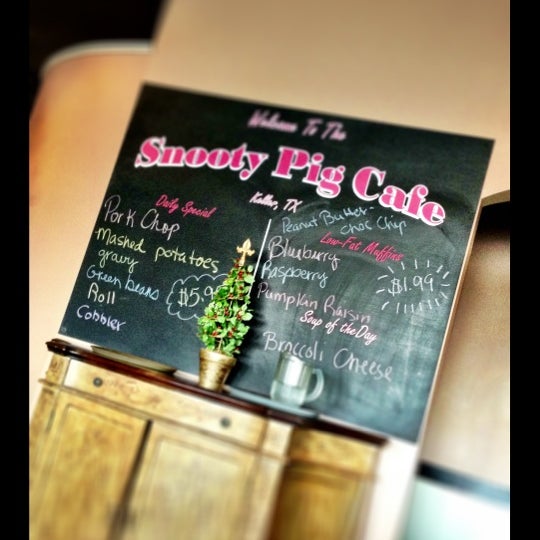 Welcome To The
Snooty Pig Cafe
Keller, TX
Daily Special
Pork Chop
Mashed potatoes
gravy
Green beans
Roll
Cobbler
Peanut Butter
Choc Chip
Low-Fat Muffins
Bluuburry
Raspberry
$1.99
Pumpkan Raisin
Soup of the Day
Broccoli Cheese